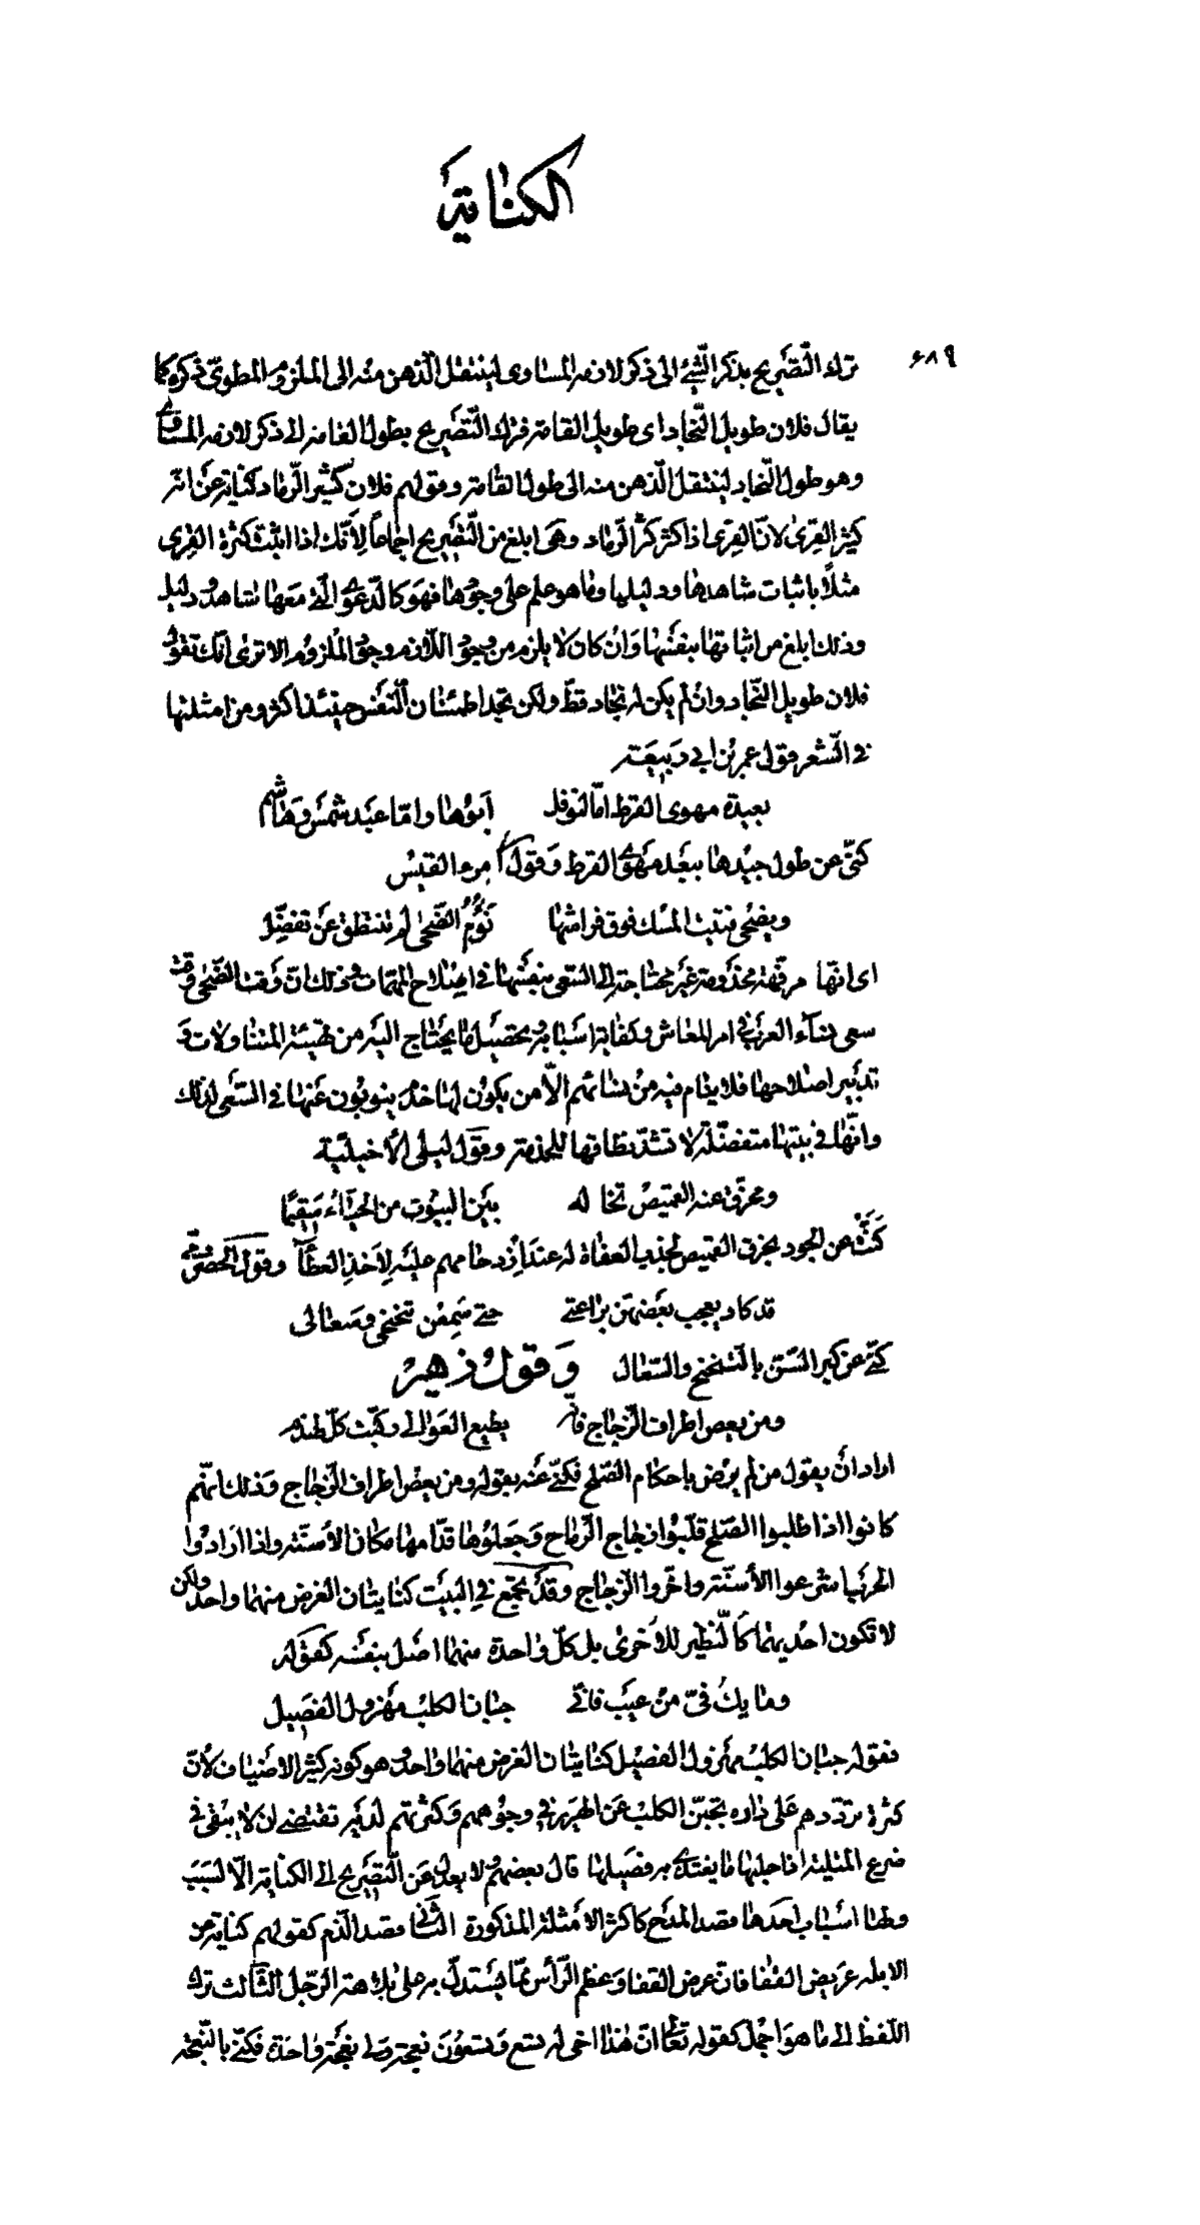 الكناية
۶۸۹
ترك التّصريح بذكر الشّئ الى ذكر لازمه المساوى لينتقل الذّهن منه الى الملزوم المطوىّ ذكره كما
يقال فلان طويل النّجاد اى طويل القامة فترك التّصريح بطول القامة الى ذكر لازمه المساوى
وهو طول النّجاد لينتقل الذّهن منه الى طول القامة وقولهم فلان كثير الرّماد كناية عن انّه
كثير القِرىٰ لانّ القِرى اذا كثر كثر الرّماد وهى ابلغ من التّصريح اجماعاً لِأنّك اذا اثبتّ كثرة القِرى
مثلاً باثبات شاهدها ودليلها وما هو علم على وجودها فهو كالدّعوى الّتى معها شاهد ودليل
وذلك ابلغ من اثباتها بنفسها وَان كان لا يلزم من وجود اللّازم وجود الملزوم الا ترىٰ انّك تقول
فلان طويل النّجاد وان لم يكن له نجاد قطّ ولكن تجد اطمئنان النّفس حينئذ اكثر ومن امثلتها
فى الشّعر قول عمر بن ابى ربيعة
بعيدة مهوى القرط امّا لنوفل    اَبوُها وامّا عَبد شمسٍ وَهَاشم
كنّى عن طول جيدها ببعد مَهوَى القرط وَقول امرء القيس
ويضحى فتيت المسك فوق فراشها    نَؤُم الضّحىٰ لم تنتطق عَن تفضّل
اى انّها مرفّهة مخدومة غير محتاجة الى السّعى بنفسها فى اصلاح المهمّات وذلك انّ وَقت الضّحىٰ وقت
سعى نسآء العرب فى امر المعاش وكفاية اسبابه وتحصيل ما يحتاج اليه من تهيئة المتناولات وَ
تدبير اصلاحها فلا ينام فيه من نسائهم الّا من يكون لها خدم ينوبون عَنها فى السّعى لذلك
وانّها فى بيتها متفضّلة لا تشدّ نطاقها للخدمة وقول ليلى الأخيليّة
ومخرّق عنه القميص تخاله    بيَن البيوت من الحيَآء سَقِيمًا
كَنَت عن الجود بخرق القميص لجذب العفاة له عند اِزدحامهم عليه لِأخذ العطآء وقول الحصرى
قد كاد يعجب بعضهنّ براعتى    حتى سَمِعْن تنحنحى وسعالى
كنّى عن كبر السّنّ بالتّنحنح والسّعال وَقول زهير
ومن يعص اطراف الزّجاج فانّه    يطيع العَوالى ركّبت كلّ لهذم
اراد أن يقول من لم يرض باحكام الصّلح فكنّى عَنه بقوله ومن يعص اطراف الزّجاج وَذلك انّهم
كانوا اذا طلبوا الصّلح قلّبوا زجاج الرّماح وَجعلوها قدّامها مكان الأسنّة واذا ارادوا
الحرب اشرعوا الأسنّة واخّروا الزّجاج وقد يجتمع فى البيت كنايتان الغرض منهما واحد ولكن
لا تكون احديهما كالنّظير للأخرىٰ بل كلّ واحدة منهما اصل بنفسه كقوله
وما يك فىّ من عيب فانّى    جبان الكلب مهزول الفصيل
فقوله جبان الكلب مهزول الفصيل كنايتان الغرض منهما واحد هو كونه كثير الاضياف لأنّ
كثرة تردّدهم عَلى داره تجبّن الكلب عَن الهرير فى وجوههم وَكثرتهم لديه تقتضى ان لا يبقى فى
ضرع المتلية اذا حلبها ما يغتذى به فصيلها قال بعضهم ولا يعدل عَن التّصريح الى الكناية الّا لسَبب
ولها اسباب احَدها قصد المدح كاكثر الأمثلة المذكورة الثّانى قصد الذّم كقولهم كناية عن
الابله عَريض القفا فانّ عرض القفا وَعظم الرّأس ممّا يستدلّ به على بلاهة الرّجل الثّالث ترك
اللّفظ الى ما هوَ اجمل كقوله تعالىٰ انّ هٰذا اخى له تسع وَتسعونَ نعجة وَلى نعجَة وٰاحدَة فكنّى بالنّعجة